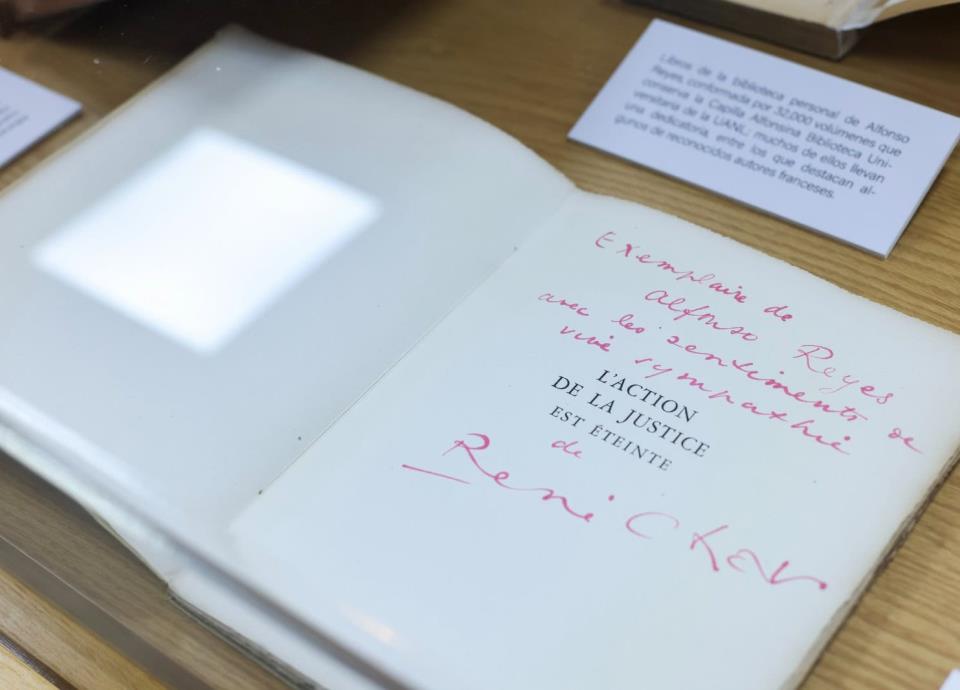 Libros de la biblioteca personal de Alfonso
Reyes, conformada por 32,000 volúmenes que
conserva la Capilla Alfonsina Biblioteca Uni-
versitaria de la UANL; muchos de ellos llevan
una dedicatoria, entre los que destacan al-
gunos de reconocidos autores franceses.
Exemplaire de
Alfonso Reyes
avec les sentiments de
vive sympathie
L'ACTION
DE LA JUSTICE
EST ÉTEINTE
de
René Char